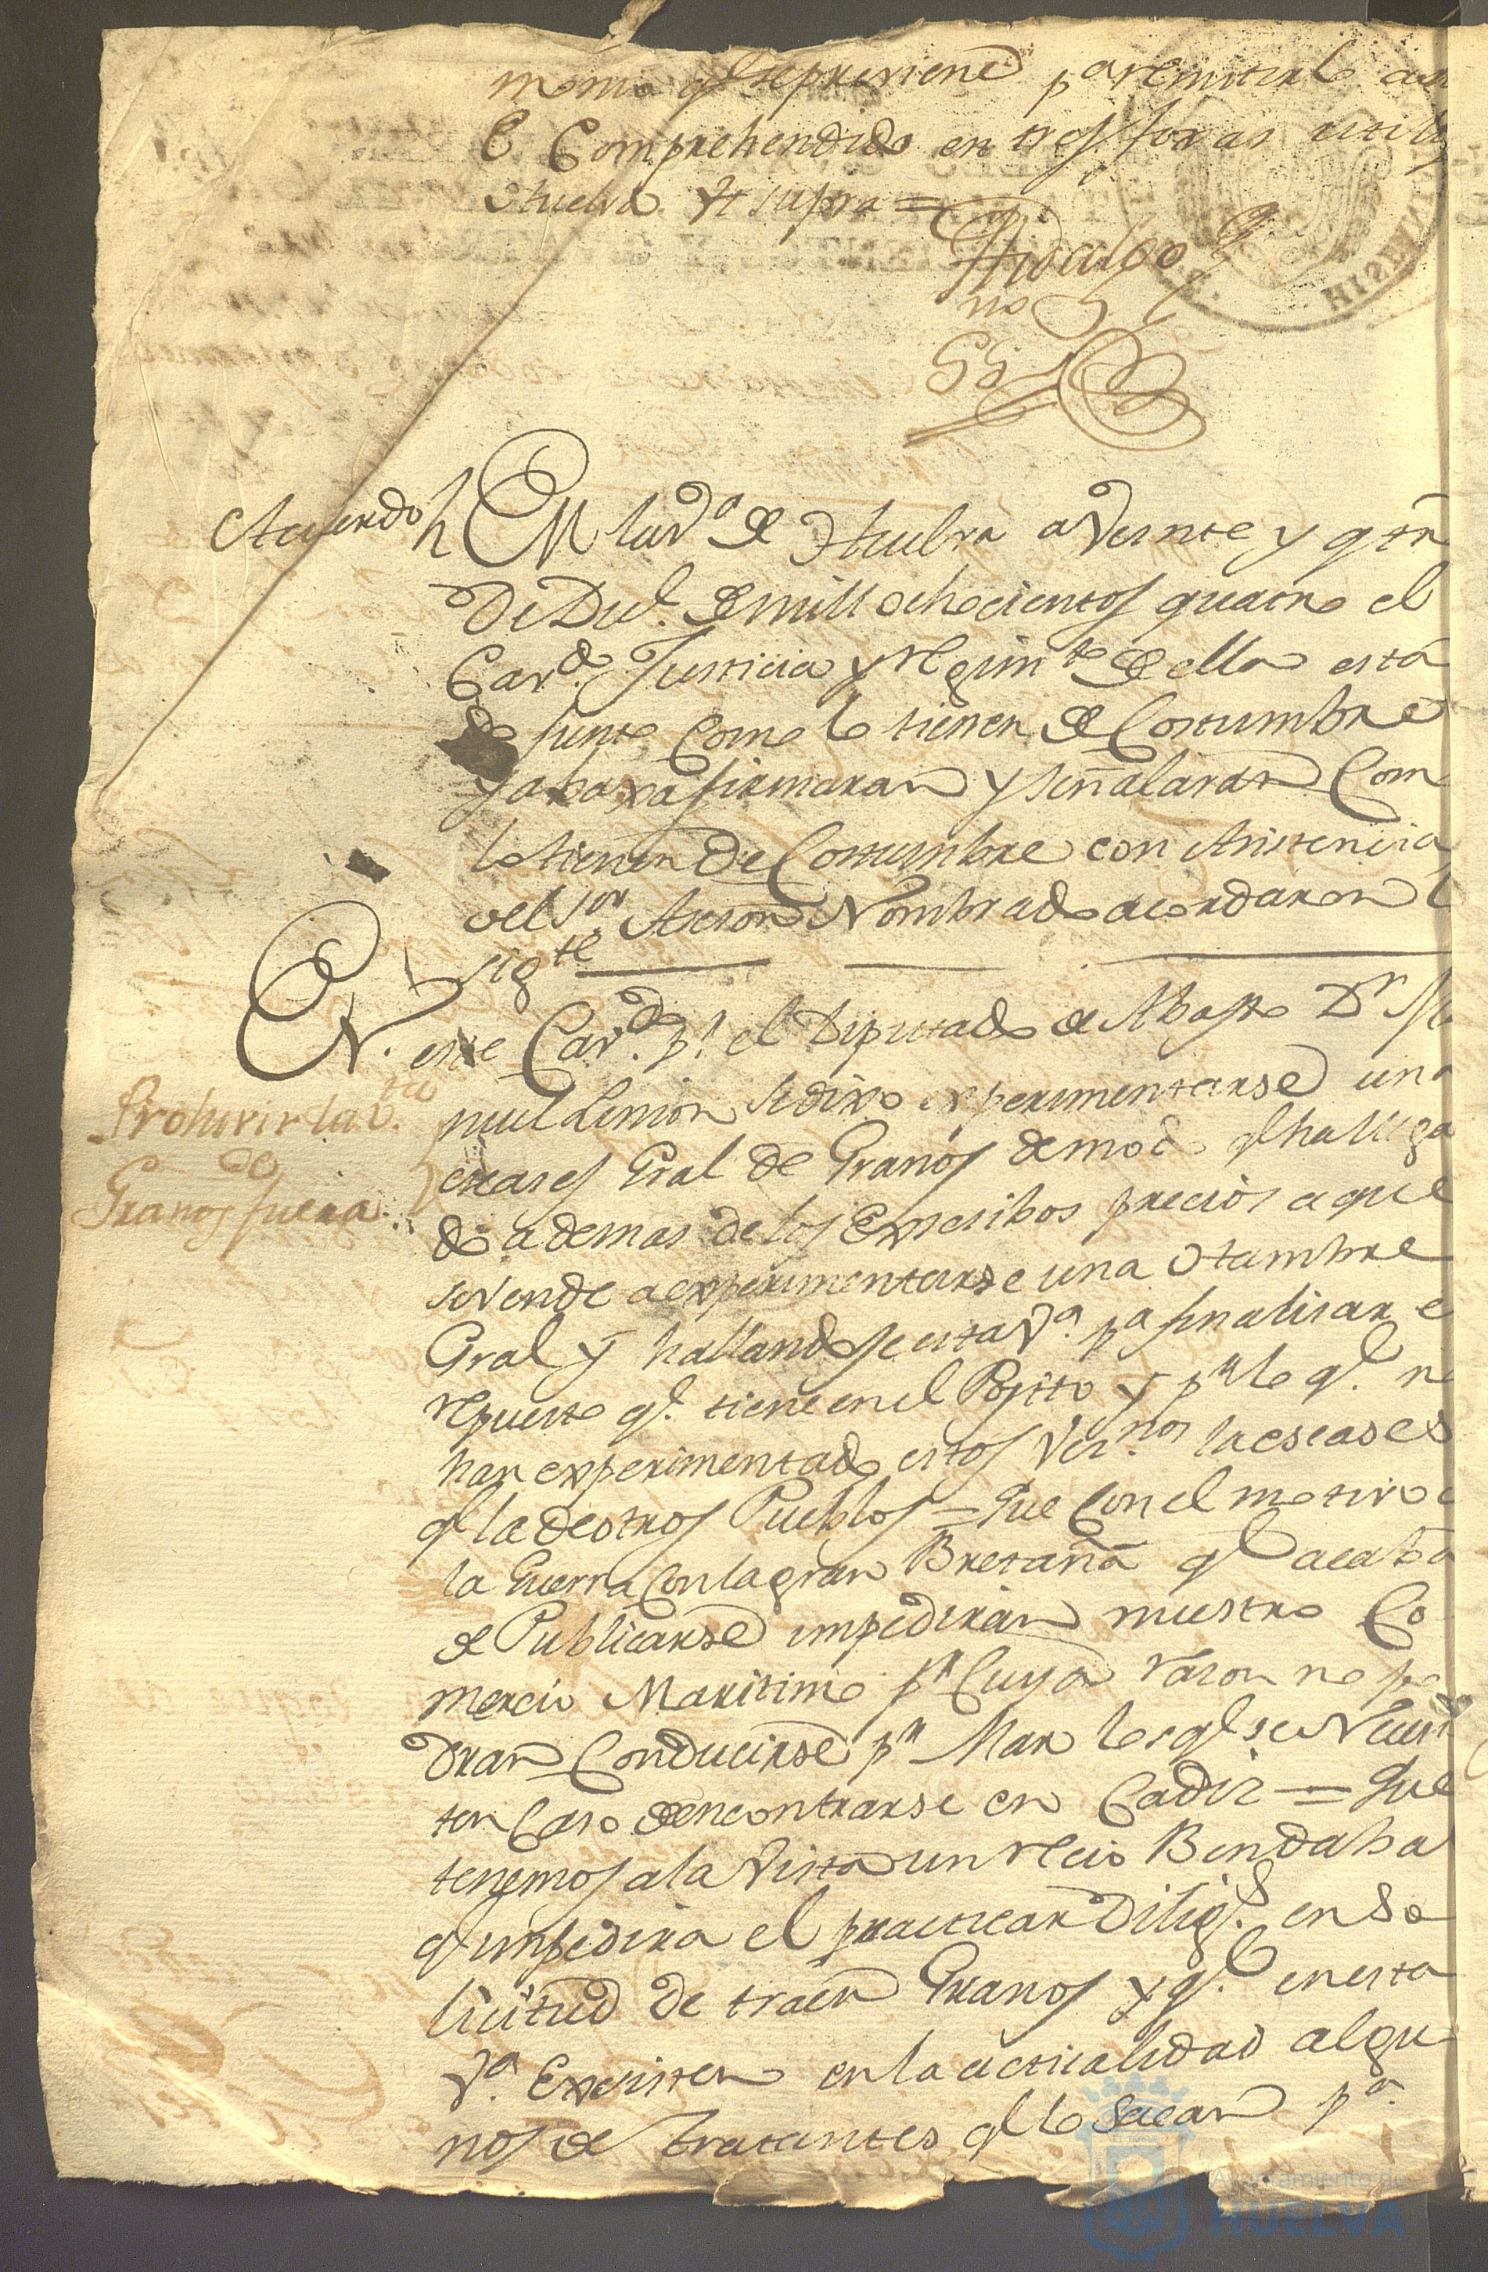 monio qe. se previene pa remitirlo
Comprehendido en tres foxas utiles
Huelva Ut supra =
Hidalgo
no
Acuerdo
En la Va. de Huelva a Veinte y qtro
de Dice. de mill ochocientos quatro el
Cavdo. Justicia y regimto. de ella están
do junto como lo tienen de Costumbre
y abaxo firmaran y señalaran Com
lo tienen de Costumbre con Asistencia
del Sor. Asesor Nombrado acordaron l
sigte
En este Cavdo. pr. el Diputado de Abasto Dn. Ma
nuel Lenion se dixo experimentarse una
escases Gral de Granos de modo q ha llega
do ademas de los Excesibos precios a que
se vende a experimentarse una Hambre
Gral y hallandose esta Va. pa finalisar e
repuesto qe. tiene en el Posito y pr lo qe. no
han experimentado estos Vecinos la escases
q la de otros Pueblos = Que con el motivo
la Guerra con la gran Bretaña qe acaba
de Publicarse impediran nuestro Co
mercio Maritimo pr Cuya rason no po
dran Conducirse pr Mar los q se Necesi
ten Caso de encontrarse en Cadiz = Que
tenemos a la Vista un recio Bendaba
q impedira el practicar Diligs. en So
licitud de traer Granos y qe. en esta
Va. Existen en la actualidad algu
nos de Tratantes q lo sacan pa.
Prohivir la vta
de
Granos fuera
HISPAN
Ayuntamiento de
HUELVA